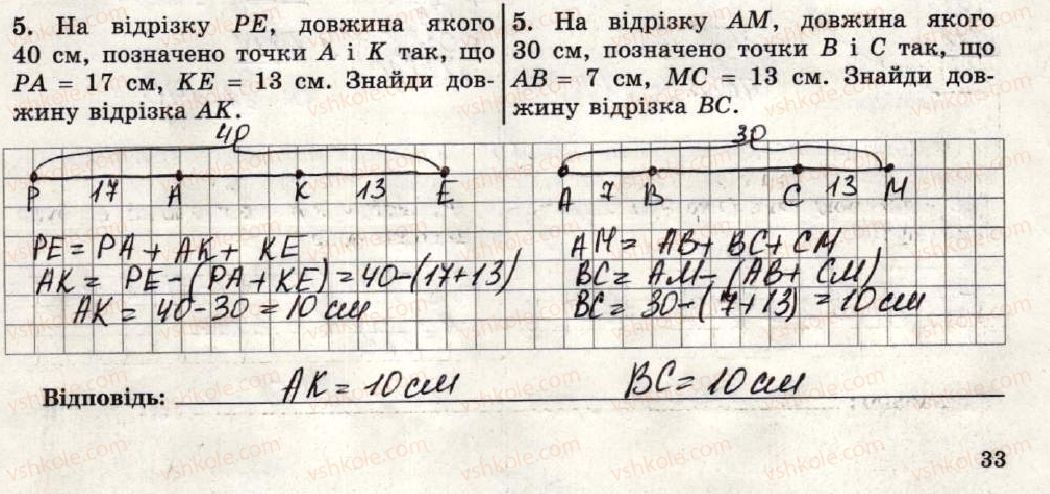 5. На відрізку PE, довжина якого
40 см, позначено точки A і K так, що
PA = 17 см, KE = 13 см. Знайди дов-
жину відрізка AK.
40
P 17 A K 13 E
PE = PA + AK + KE
AK = PE - (PA + KE) = 40 - (17+13)
AK = 40 - 30 = 10 см
5. На відрізку AM, довжина якого
30 см, позначено точки B і C так, що
AB = 7 см, MC = 13 см. Знайди дов-
жину відрізка BC.
30
A 7 B C 13 M
AM = AB + BC + CM
BC = AM - (AB + CM)
BC = 30 - (7+13) = 10 см
Відповідь: AK = 10 см BC = 10 см
33
vshkole.com